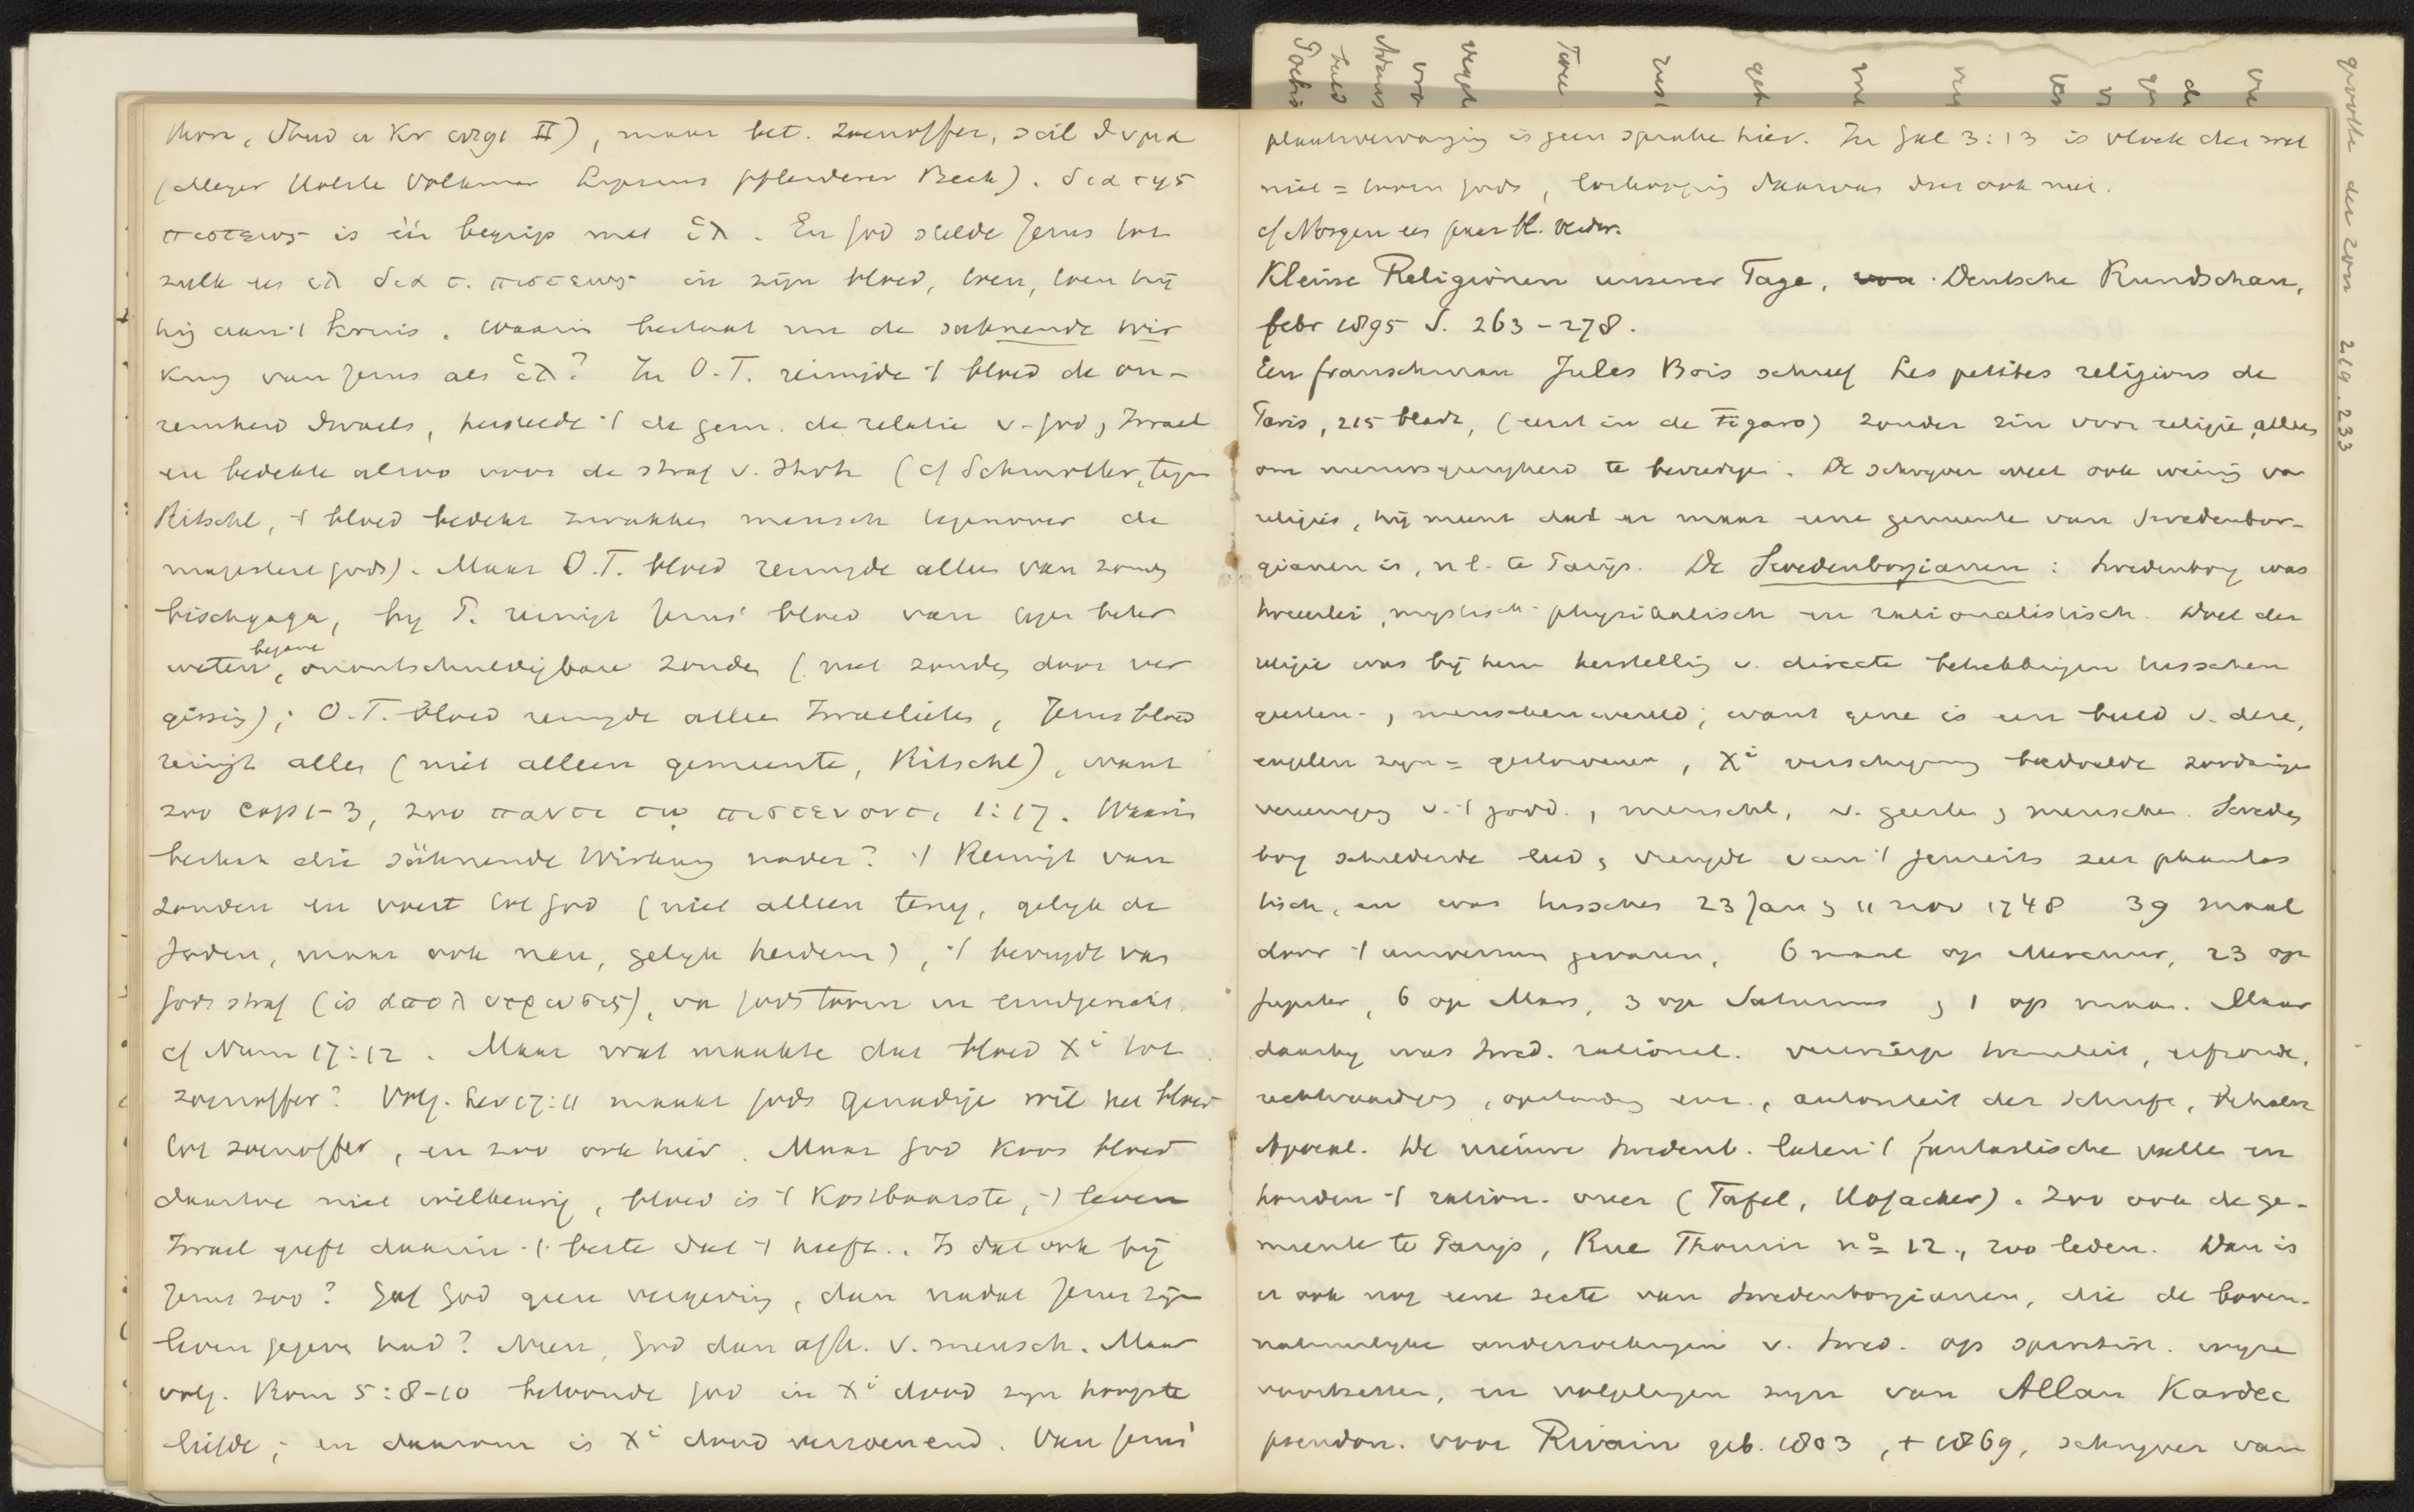 maar bet. zoenoffer, scil θυμα
(Meyer Volkmar Lipsius Pfleiderer Beck). δια της
πιστεως is één begrip met ἱλ. En God stelde Jezus tot
zulk een ἱλ δια τ. πιστεως in zijn bloed, toen, toen hij
hij aan 't kruis. Waarin bestaat nu de sühnende Wir
kung van Jezus als ἱλ? In O.T. reinigde 't bloed de on-
reinheid Israels, herstelde 't de gem. de relatie v. God, Israel
en bedekte alzoo voor de straf v. (cf Schmoller, tegen
Ritschl, 't bloed bedekt zwakken mensch tegenover de
majesteit Gods). Maar O.T. bloed reinigde alleen van zonden
bischgaga, bij P. reinigt Jezus' bloed van tegen beter
weten begane, onontschuldigbare zonden (niet zonden door ver
gissing); O.T. bloed reinigde alleen Israelieten, Jezus bloed
reinigt allen (niet alleen gemeente, Ritschl), want
zoo cap 1-3, zoo παντι τῳ πιστευοντι 1:17. Waarin
bestaat die sühnende Wirkung nader? 't Reinigt van
zonden en voert tot God (niet alleen terug, gelijk de
Joden, maar ook neu, gelijk heidenen), 't bevrijdt van
Gods straf (is απολυτρωσις), van Gods toorn in eindgericht.
cf Num 17:12. Maar wat maakte dat bloed Xi tot
zoenoffer? Volg. Lev 17:11 maakt Gods genadige wil het bloed
tot zoenoffer, en zoo ook hier. Maar God koos bloed
daartoe niet willekeurig, bloed is 't kostbaarste, 't leven
Israel geeft daarin 't beste dat 't heeft. Is dat ook bij
Jezus zoo? Gaf God geen vergeving, dan nadat Jezus zijn
leven gegeven had? Neen, God dan afh. v. mensch. Maar
volg. Rom 5:8-10 betoonde God in Xi dood zijn hoogste
liefde; en daarom is Xi dood verzoenend. Van Jezus'
plaatsvervanging is geen sprake hier. In Gal 3:13 is vloek der wet
niet = toorn Gods, loskooping daarvan dus ook niet.
Kleine Religionen unserer Tage, Deutsche Rundschau,
febr 1895 S. 263-278.
Een franschman Jules Bois schreef Les petites religions de
Paris, 215 bladz, (eerst in de Figaro) zonder zin voor religie, alleen
om nieuwsgierigheid te bevredigen. De schrijver weet ook weinig van
religies, hij meent dat er maar eene gemeente van Swedenbor-
gianen is, nl. te Parijs. De Swedenborgianen: Swedenborg was
tweeerlei, mystisch-physikalisch en rationalistisch. Doel der
religie was bij hem herstelling v. directe betrekkingen tusschen
geesten-, menschenwereld; want gene is een beeld v. deze,
engelen zijn = gestorvenen, Xi verschijning bedoelde zoodanige
vereeniging v. 't godd., menschl, v. geesten, menschen. Sweden
borg schilderde leed, vreugde van 't jenseits zeer phantas
tisch, en was tusschen 23 Jan, 11 nov 1748 39 maal
door 't universum gevaren, 6 maal op Mercurius, 23 op
Jupiter, 6 op Mars, 3 op Saturnus, 1 op maan. Maar
daarbij was Swed. rationeel. verwierp triniteit, erfzonde,
rechtvaardig, opstanding enz., autoriteit der Schrift, behalve
Apocal. De nieuwe Swedenb. laten 't fantastische vallen en
houden 't ration. over (Tafel, Hofacker). Zoo ook de ge-
meente te Parijs, Rue Thouin no 12, 200 leden. Dan is
er ook nog eene secte van Swedenborgianen, die de boven-
natuurlijke onderzoekingen v. Swed. op spiritist. wijze
voortzetten, en volgelingen zijn van Allan Kardec
pseudon. voor Rivain geb. 1803, + 1869, schrijver van
der zon 219. 233